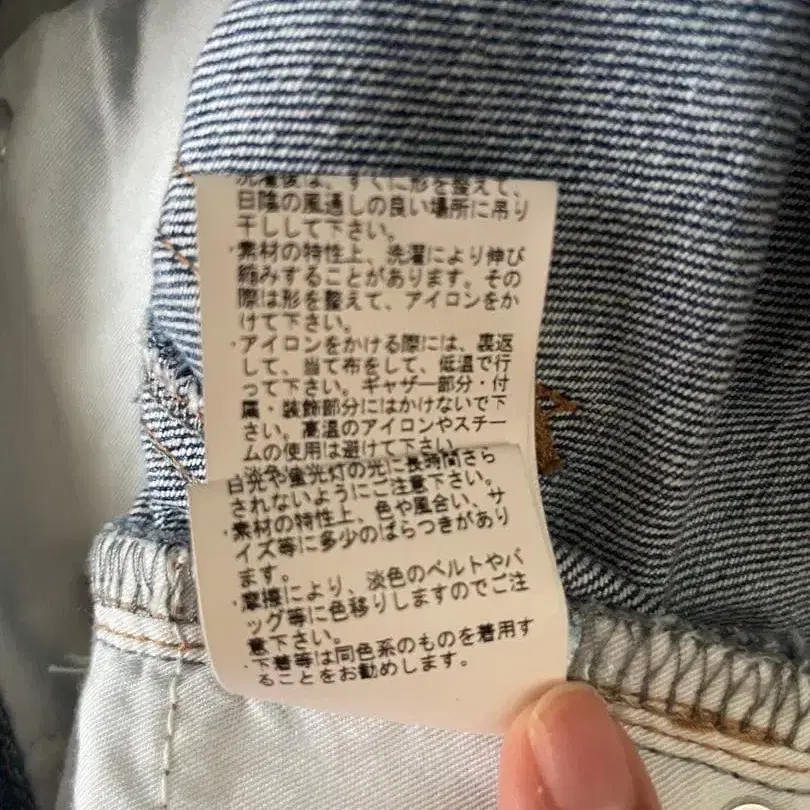 洗濯後は、すぐに形を整えて、
日陰の風通しの良い場所に吊り
干しして下さい。
・素材の特性上、洗濯により伸び
縮みすることがあります。その
際は形を整えて、アイロンをか
けて下さい。
・アイロンをかける際には、裏返
して、当て布をして、低温で行
って下さい。ギャザー部分・付
属・装飾部分にはかけないで下
さい。高温のアイロンやスチー
ムの使用は避けて下さい。
日光や蛍光灯の光に長時間さら
されないようにご注意下さい。
・素材の特性上、色や風合い、サ
イズ等に多少のばらつきがあり
ます。
・摩擦により、淡色のベルトやバ
ッグ等に色移りしますのでご注
意下さい。
・下着等は同色系のものを着用す
ることをお勧めします。